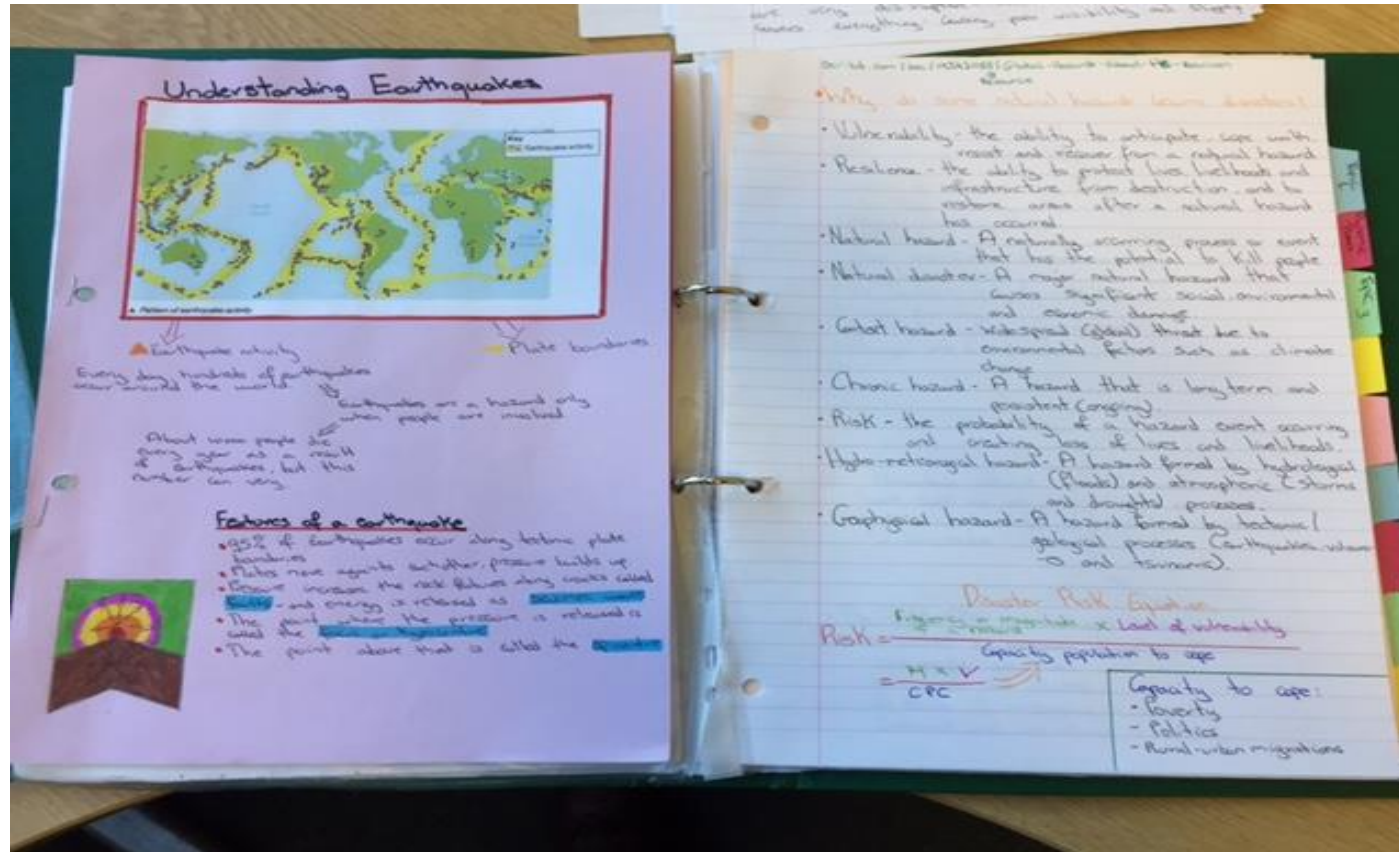 are using
covers everything causing poor visibility and
Understanding Earthquakes
Key
Earthquake activity
Pattern of earthquake activity
Earthquake activity
Plate boundaries
Every day, hundreds of earthquakes
occur around the world
Earthquakes are a hazard only
when people are involved
About people die
every year as a result
of earthquakes, but this
number can vary
Features of a earthquake
• 95% of earthquakes occur along tectonic plate
boundaries
• Plates move against eachother, pressure builds up
• Pressure increases the rock along cracks called
faults and energy is released as
• The point where the pressure is released is
called the focus or hypocentre
• The point above that is called the epicentre
• Why do some natural hazards become disasters?
• Vulnerability - the ability to anticipate cope with
resist and recover from a natural hazard
• Resilience - the ability to protect lives, livelihoods and
infrastructure from destruction, and to
restore areas after a natural hazard
has occurred.
• Natural hazard - A naturally occurring process or event
that has the potential to kill people
• Natural disaster - A major natural hazard that
causes significant social, environmental
and economic damage
• hazard - widespread (global) threat due to
environmental factors such as climate
change
• Chronic hazard - A hazard that is long term and
persistent (ongoing)
• Risk - the probability of a hazard event occurring
and creating loss of lives and livelihoods.
• hazard - A hazard formed by hydrological
(floods) and atmospheric (storms
and droughts) processes.
• hazard - A hazard formed by tectonic/
geological processes (earthquakes,
and tsunamis).
Disaster Risk Equation
Risk = or magnitude x Level of vulnerability
Capacity population to cope
= H x V
CPC
Capacity to cope:
- Poverty
- Politics
- Rural-urban migrations